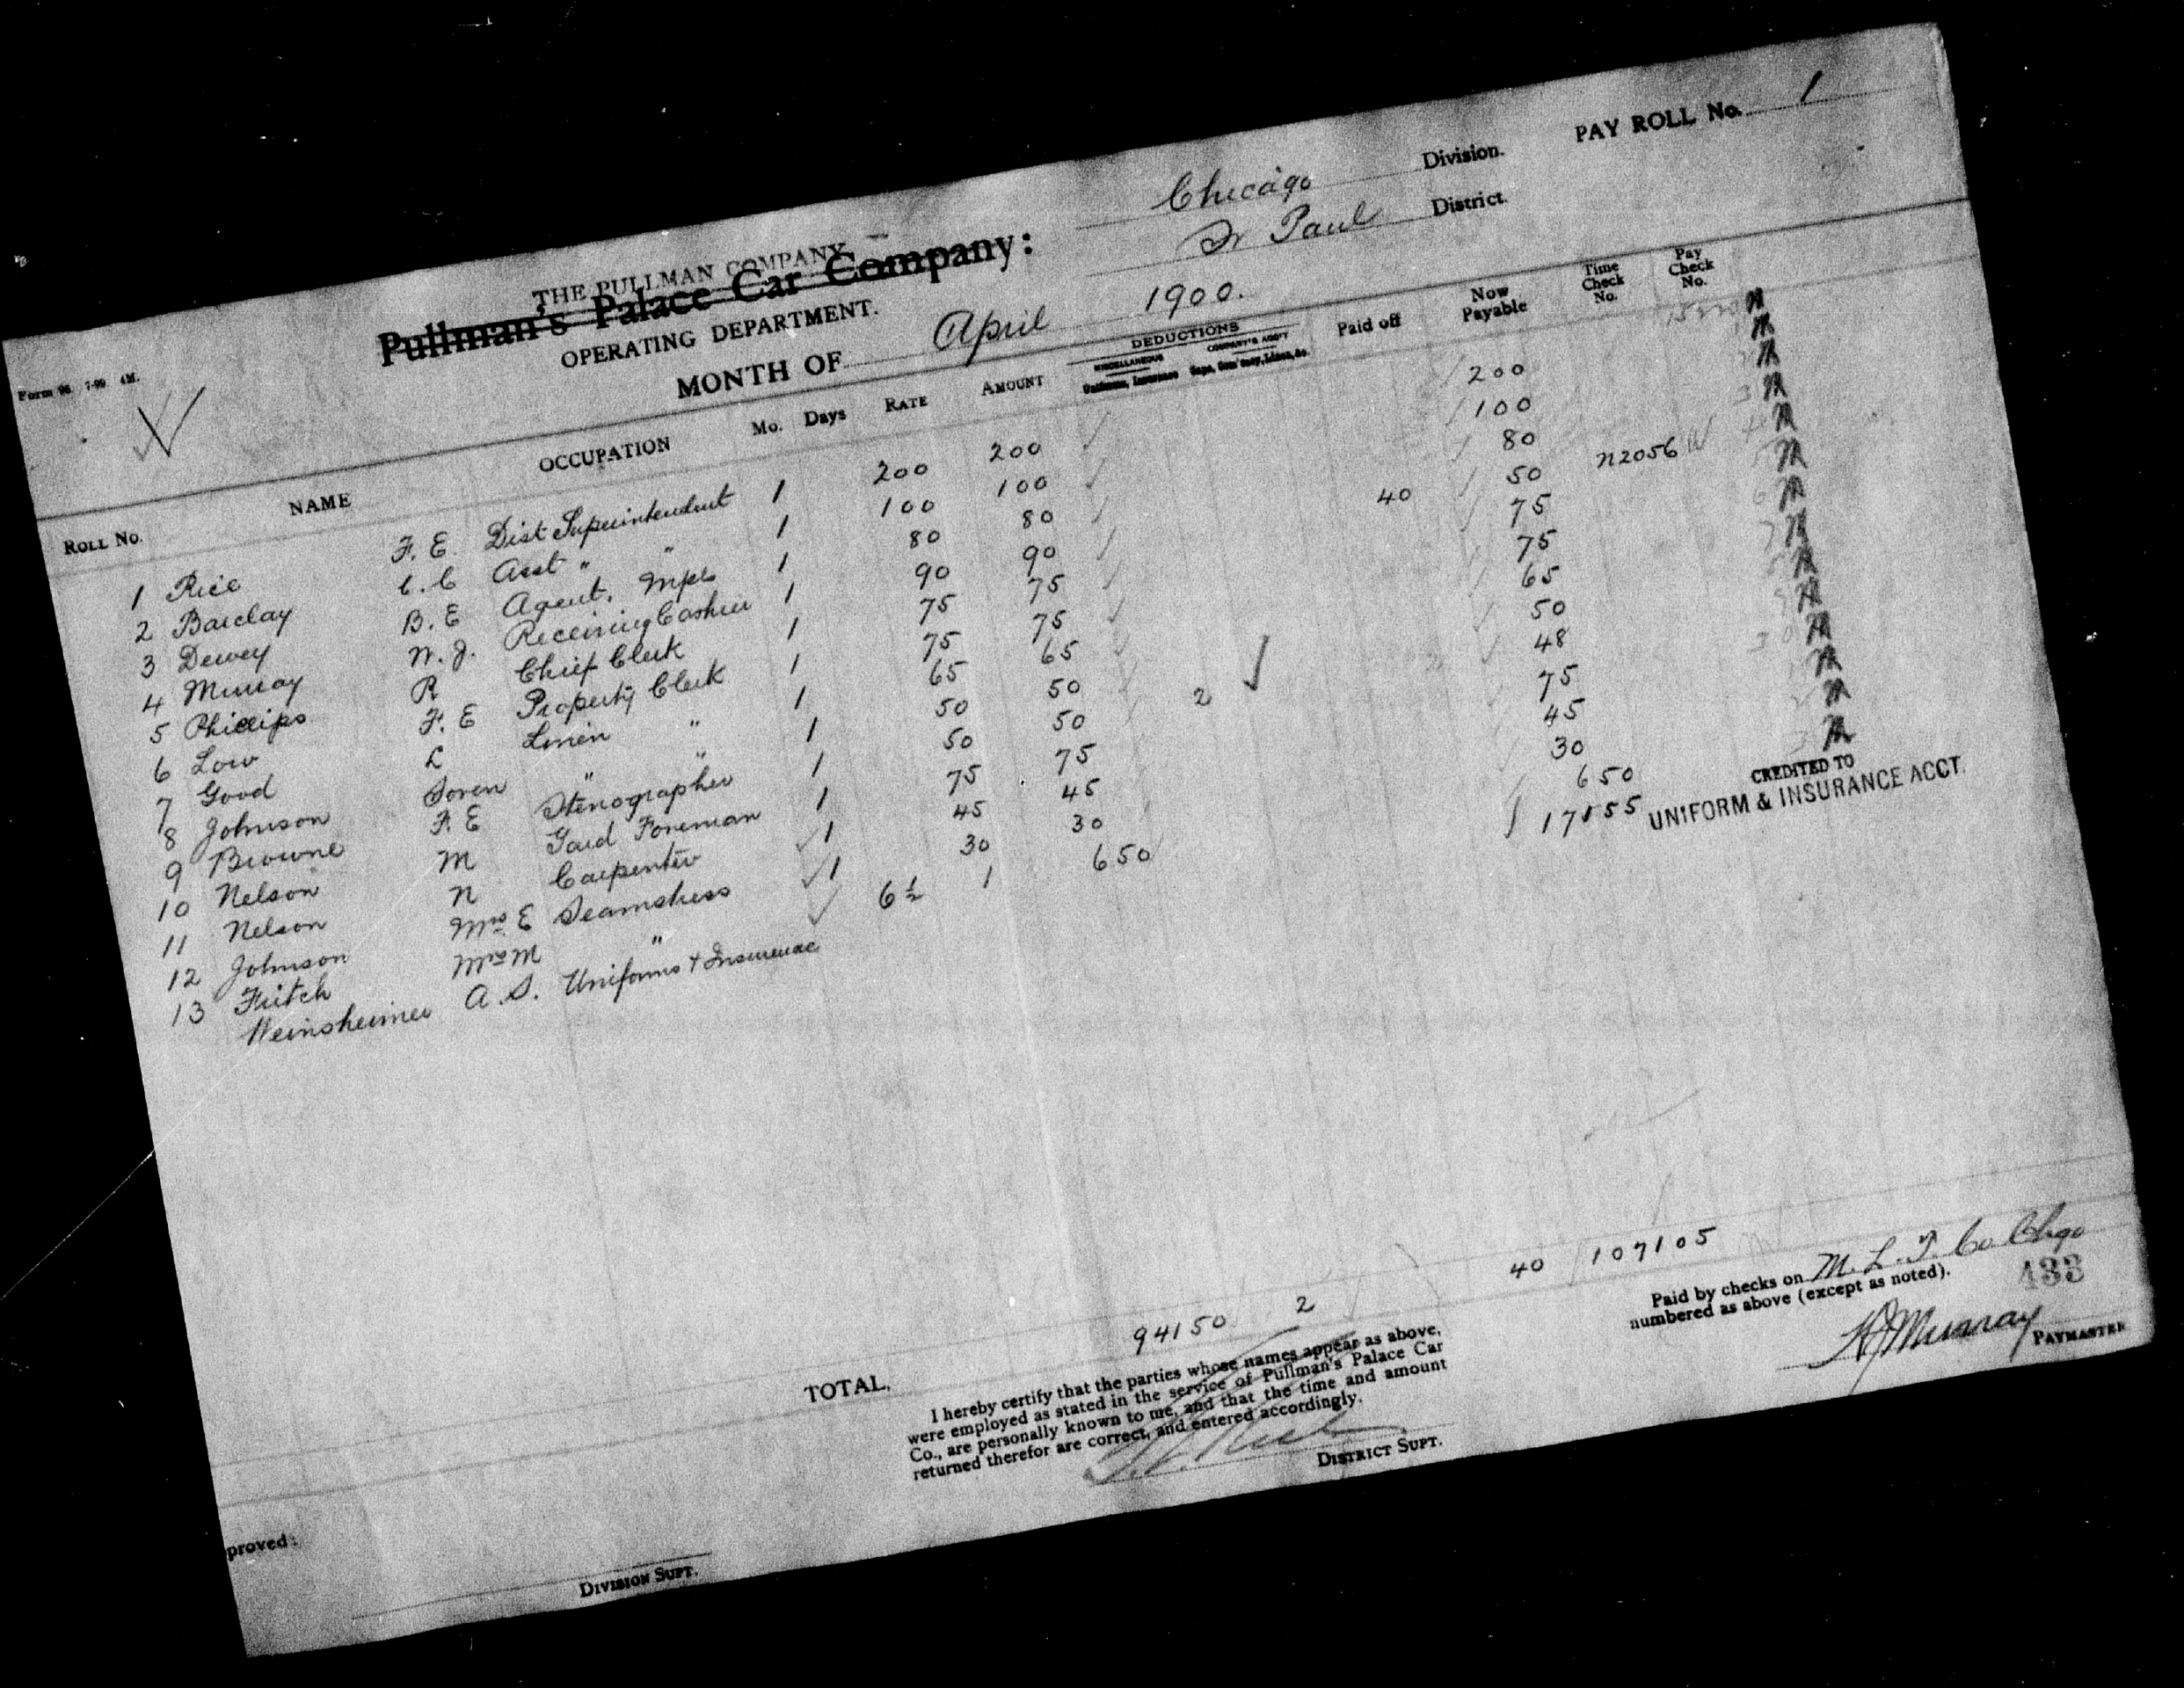 PAY ROLL No. 1
Chicago Division.
St Paul District.
THE PULLMAN COMPANY
Pullman's Palace Car Company:
OPERATING DEPARTMENT.
MONTH OF April 1900.
Form 96 7-99 4M.
ROLL No. NAME OCCUPATION Mo. Days RATE AMOUNT DEDUCTIONS MISCELLANEOUS Uniforms, Insurance COMPANY'S ACC'T Paid off Now Payable Time Check No. Pay Check No.
1 Rice F. E. Dist Superintendent 1 200 200 200
2 Barclay C. C Asst " " 1 100 100 100
3 Dewey B. E Agent, Mpls 1 80 80 80
4 Murray W. J. Receiving Cashier 1 90 90 40 50 N2056
5 Phillips R Chief Clerk 1 75 75 75
6 Low F. E Property Clerk 1 75 75 75
7 Good L Linen " 1 65 65 65
8 Johnson Soren " " 1 50 50 50
9 Browne F. E Stenographer 1 50 50 2 48
10 Nelson M Yard Foreman 1 75 75 75
11 Nelson N Carpenter 1 45 45 45
12 Johnson Mrs E Seamstress 1 30 30 30
13 Fritch Mrs M " 6½ 1 6 50 6 50
Weinsheimer A. S. Uniforms & Insurance 171 55
CREDITED TO
UNIFORM & INSURANCE ACCT.
TOTAL, 941 50 2 40 1071 05
I hereby certify that the parties whose names appear as above,
were employed as stated in the service of Pullman's Palace Car
Co., are personally known to me, and that the time and amount
returned therefor are correct, and entered accordingly.
DISTRICT SUPT.
Paid by checks on M. L. T. Co Chgo
numbered as above (except as noted).
433
Murray PAYMASTER
proved:
DIVISION SUPT.